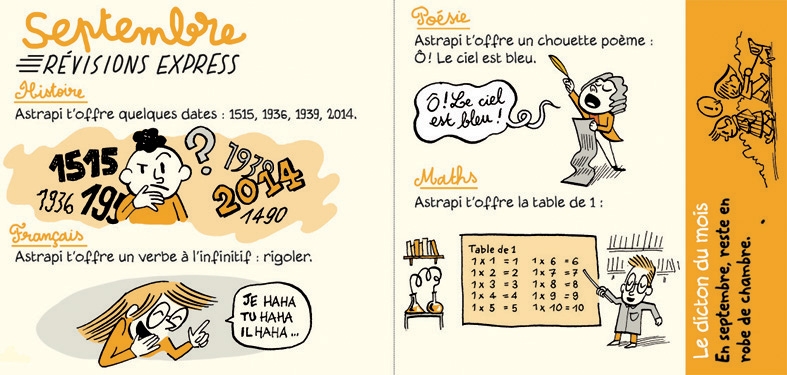 Septembre
RÉVISIONS EXPRESS
Histoire
Astrapi t'offre quelques dates : 1515, 1936, 1939, 2014.
1515
?
1939
1936
195
2014
1490
Français
Astrapi t'offre un verbe à l'infinitif : rigoler.
JE HAHA
TU HAHA
IL HAHA...
Poésie
Astrapi t'offre un chouette poème :
Ô! Le ciel est bleu.
Ô! Le ciel
est bleu!
Maths
Astrapi t'offre la table de 1 :
Table de 1
1 x 1 = 1 1 x 6 = 6
1 x 2 = 2 1 x 7 = 7
1 x 3 = 3 1 x 8 = 8
1 x 4 = 4 1 x 9 = 9
1 x 5 = 5 1 x 10 = 10
Le dicton du mois
En septembre, reste en
robe de chambre.